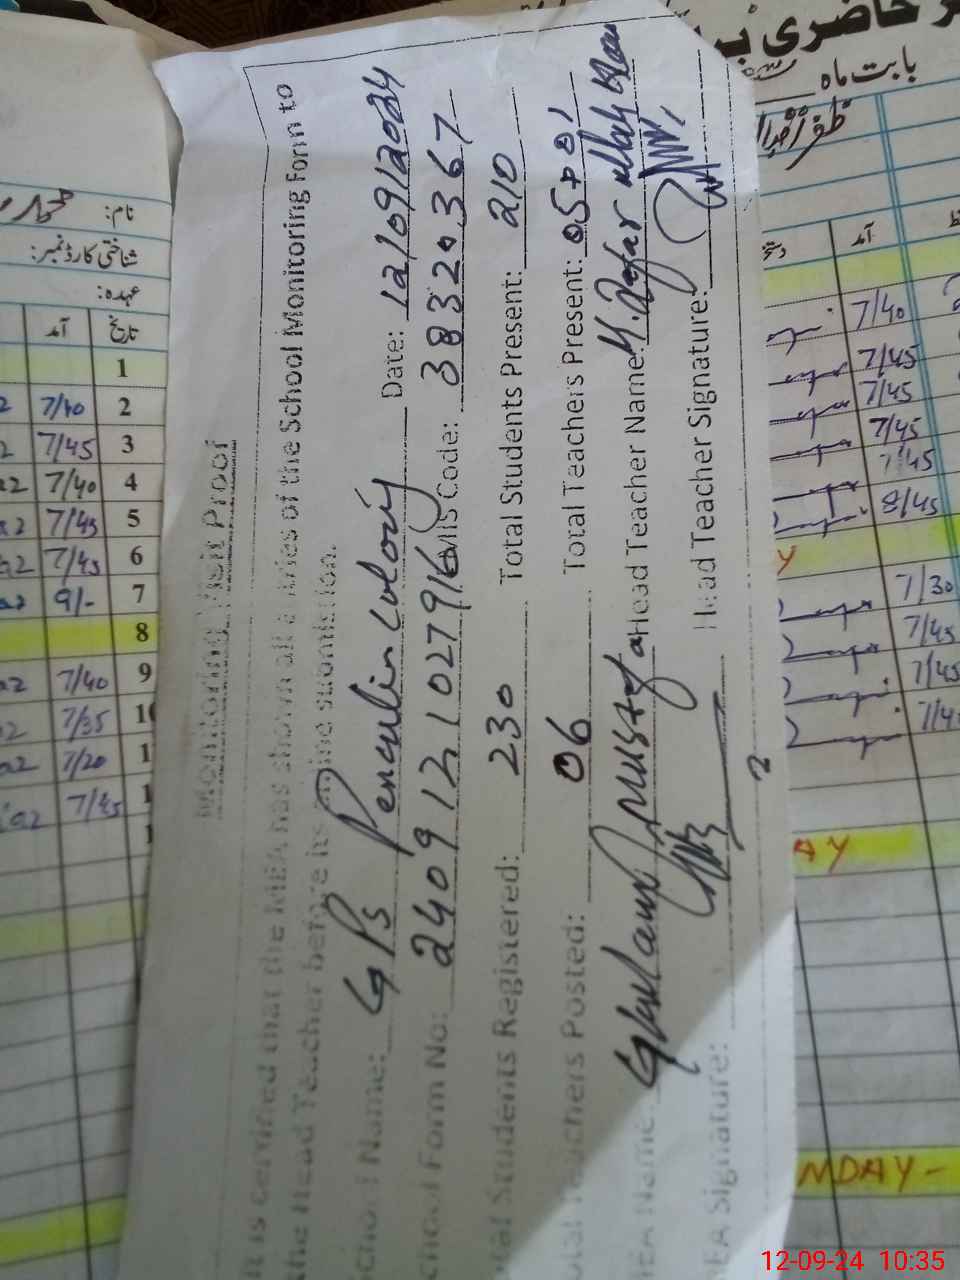 Monitoring Visit Proof
It is certified that the MEA has shown all entries of the School Monitoring Form to
the Head Teacher before its online submission.
School Name: GPS Penculin Colony Date: 12/09/2024
School Form No: 2409121027916 EMIS Code: 38320367
Total Students Registered: 230 Total Students Present: 210
Total Teachers Posted: 06 Total Teachers Present: 05+01
MEA Name: Ghulam Mustafa Head Teacher Name: M. Zafar ullah Khan
MEA Signature: Head Teacher Signature:
حاضری
بابت ماہ
نام:
شناختی کارڈ نمبر:
عہدہ:
آمد تاریخ
1
7/40 2
7/45 3
7/40 4
7/45 5
7/45 6
9/- 7
8
7/40 9
7/35
7/20
7/45
آمد
7/40
7/45
7/45
7/45
7/45
8/45
7/30
7/45
7/45
NDAY -
12-09-24 10:35